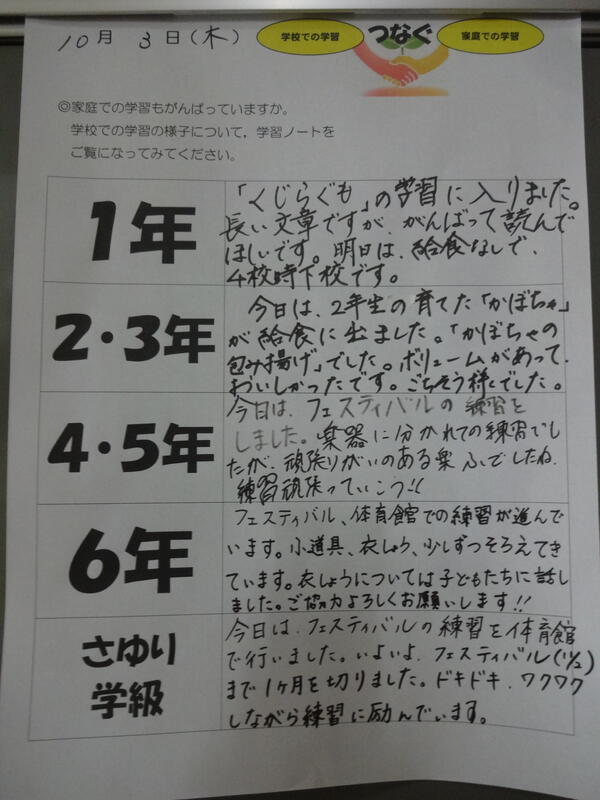 10月 3日(木)
学校での学習
つなぐ
家庭での学習
◎家庭での学習もがんばっていますか。
学校での学習の様子について，学習ノートを
ご覧になってみてください。
1年
「くじらぐも」の学習に入りました。
長い文章ですが、がんばって読んで
ほしいです。明日は、給食なしで、
4校時下校です。
2・3年
今日は、2年生の育てた「かぼちゃ」
が給食に出ました。「かぼちゃの
包み揚げ」でした。ボリュームがあって、
おいしかったです。ごちそう様でした。
4・5年
今日は、フェスティバルの練習を
しました。楽器に分かれての練習でし
たが、頑張りがいのある楽ふでしたね。
練習頑張っていこう!!
6年
フェスティバル、体育館での練習が進んで
います。小道具、衣しょう、少しずつそろえてき
ています。衣しょうについては子どもたちに話し
ました。ご協力よろしくお願いします!!
さゆり
学級
今日は、フェスティバルの練習を体育館
で行いました。いよいよ、フェスティバル(11/2)
まで1ヶ月を切りました。ドキドキ、ワクワク
しながら練習に励んでいます。